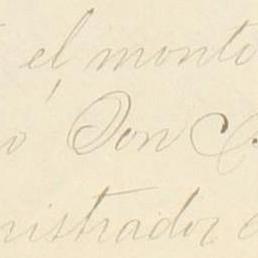 el monto
Don
nistrador